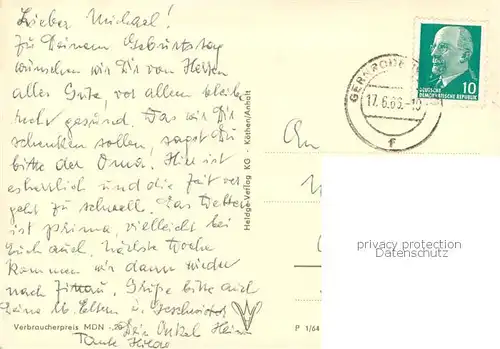 Lieber Michael!
Zu Deinem Geburtstag
wünschen wir Dir von Herzen
alles Gute, vor allem bleibe
recht gesund. Was wir Dir
schenken sollen, sagst Du
bitte der Oma. Hier ist
es herrlich und die Zeit ver
geht zu schnell. Das Wetter
ist prima, vielleicht bei
Euch auch. Nächste Woche
kommen wir dann wieder
nach Grüße bitte auch
Deine lb. Eltern u. Geschwister
Dein Onkel Heinz
Tante Hilde
Verbraucherpreis MDN -,20
Heldge-Verlag KG - Köthen/Anhalt
P 1/64
An
GERNRODE
17.6.65.-10
f
10
DEUTSCHE
DEMOKRATISCHE REPUBLIK
privacy protection
Datenschutz